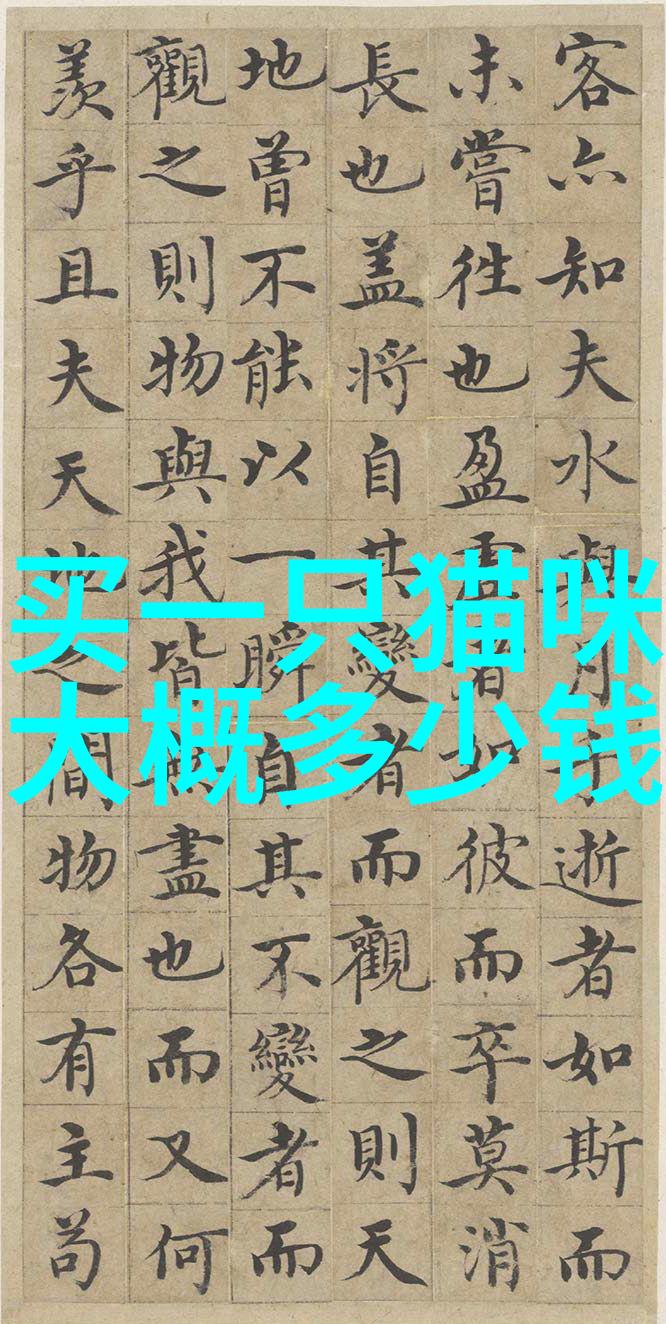 客亦知夫水與月乎逝者如斯而
未嘗往也盈虛者如彼而卒莫消
長也盖將自其變者而觀之則天
地曾不能以一瞬自其不變者而
觀之則物與我皆無盡也而又何
羨乎且夫天地之間物各有主苟
买一只猫咪
大概多少钱